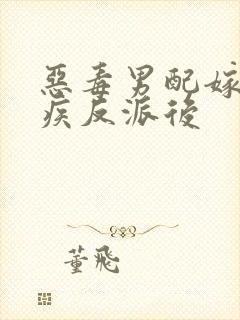 惡毒男配嫁
疾反派後
董飛